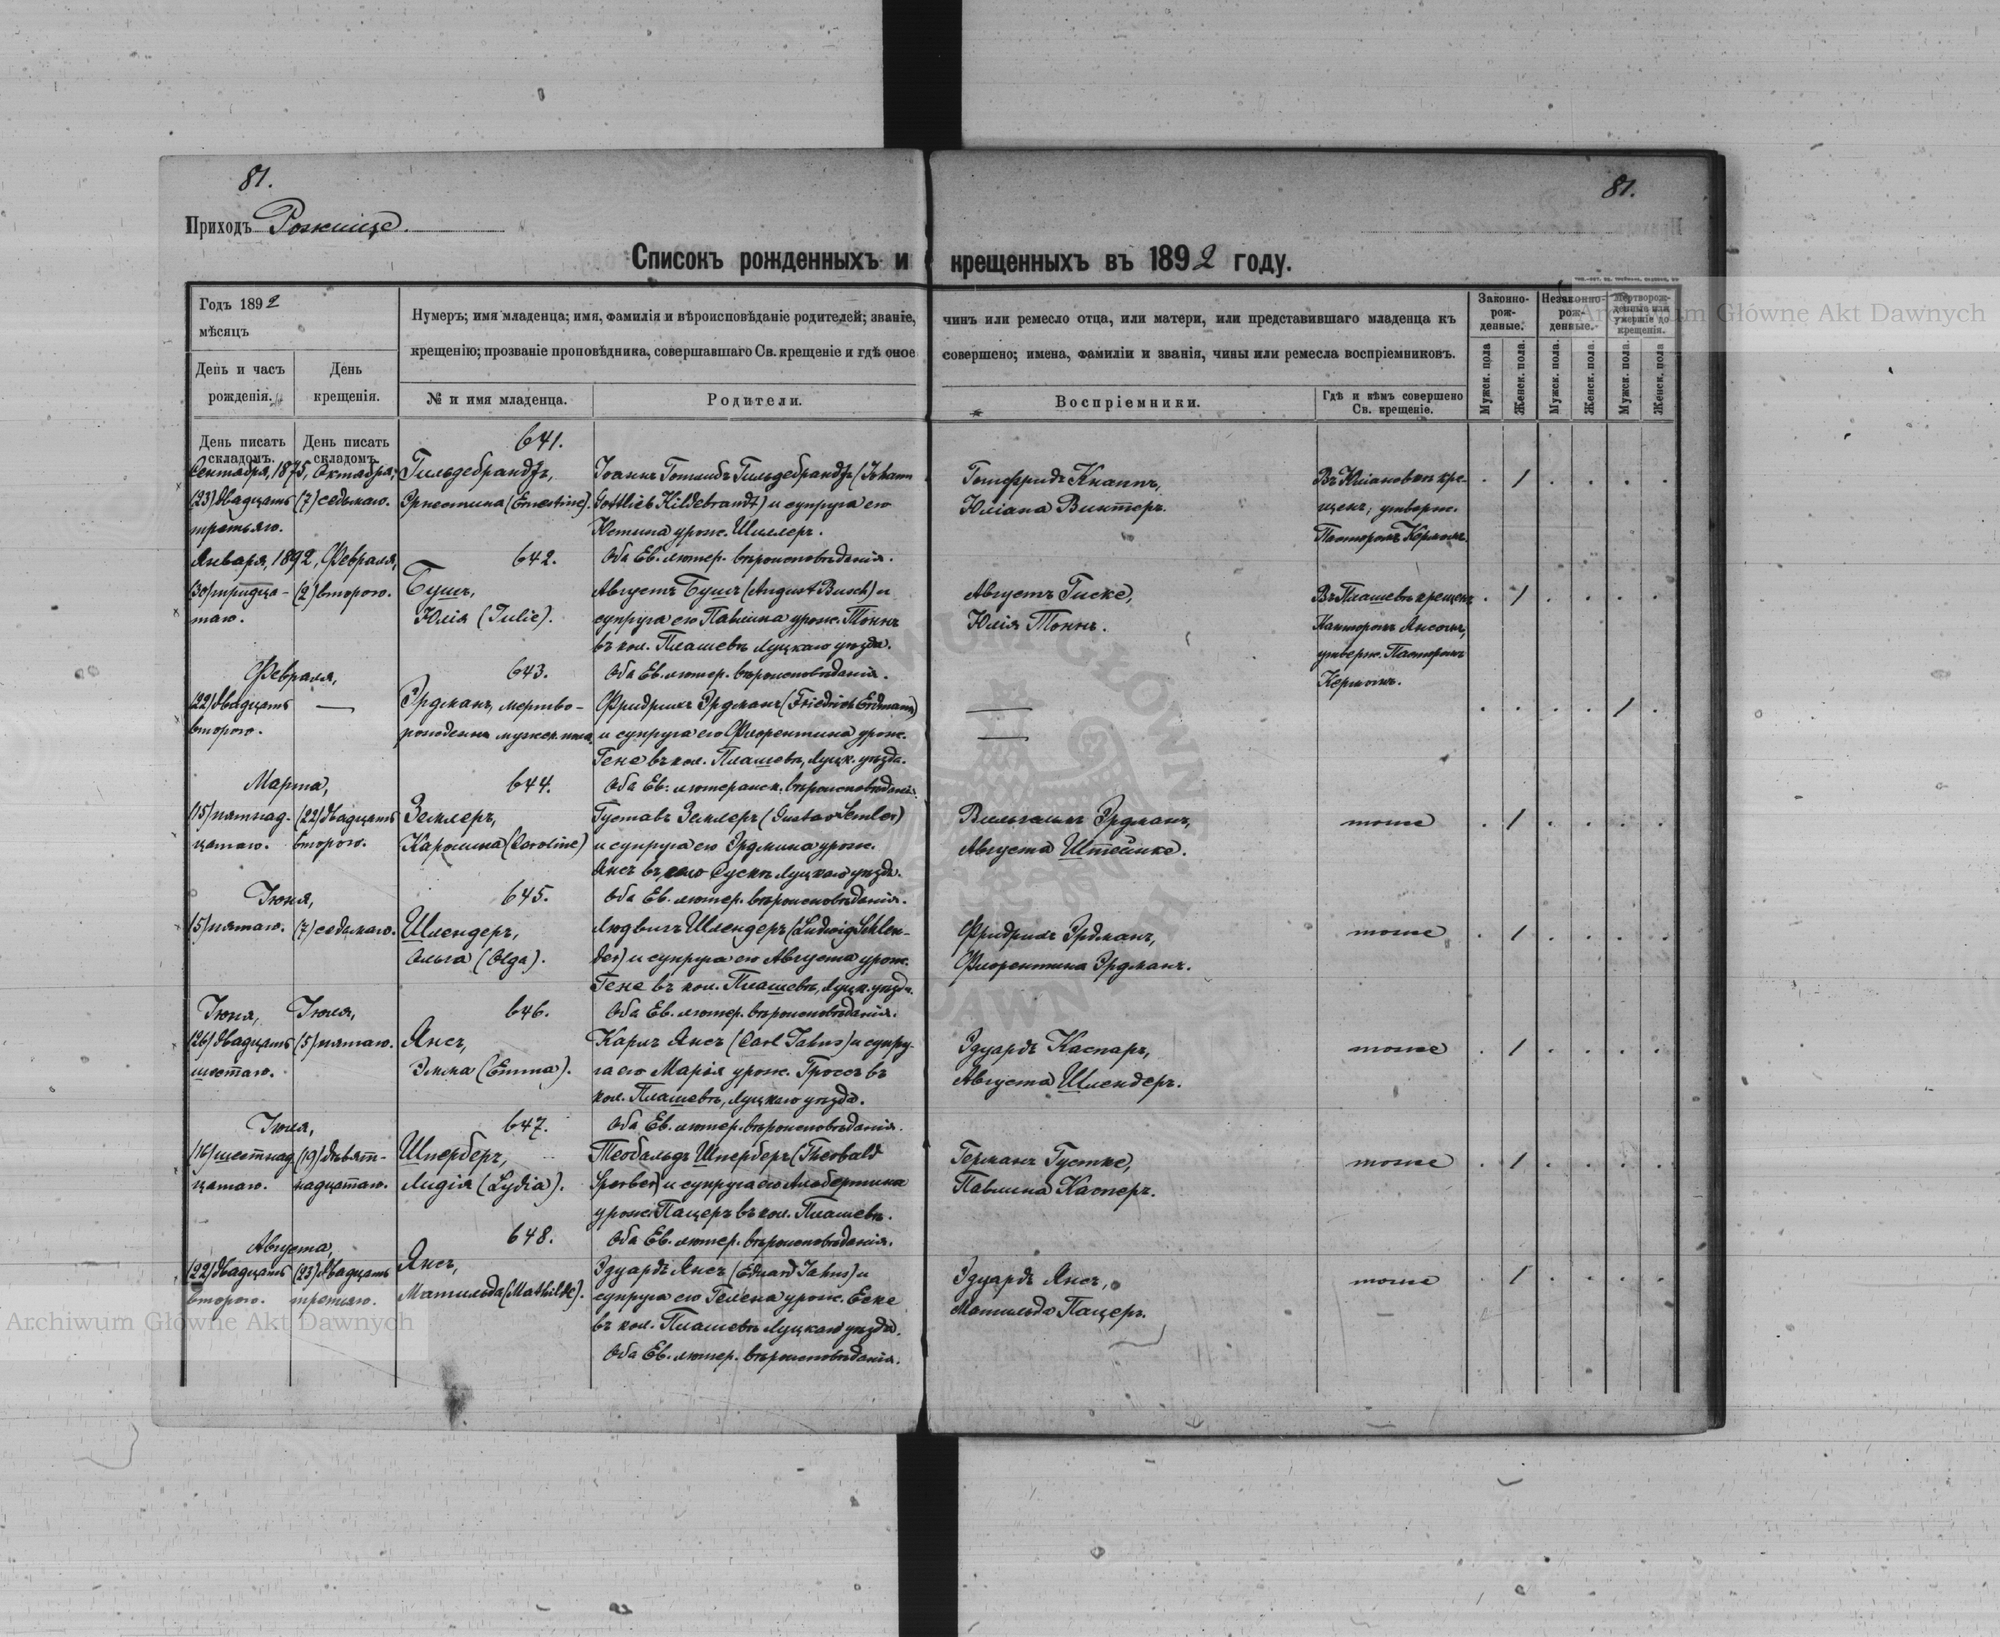 81.
81.
Приходъ Рожище.
Списокъ рожденныхъ и крещенныхъ въ 1892 году.
Годъ 1892
мѣсяцъ
День и часъ рожденія.
День крещенія.
Нумеръ; имя младенца; имя, фамилія и вѣроисповѣданіе родителей; званіе, чинъ или ремесло отца, или матери, или представившаго младенца къ
крещенію; прозваніе проповѣдника, совершавшаго Св. крещеніе и гдѣ оное совершено; имена, фамиліи и званія, чины или ремесла воспріемниковъ.
№ и имя младенца.
Родители.
Воспріемники.
Гдѣ и кѣмъ совершено
Св. крещеніе.
Законно-
рож-
денные.
Незаконно-
рож-
денные.
Мертворож-
денные или
умершіе до
крещенія.
Мужск. пола
Женск. пола.
Мужск. пола.
Женск. пола.
Мужск. пола.
Женск. пола
День писать складомъ.
День писать складомъ.
641.
Сентября, 1875, Октября,
(23) двадцать
третьяго.
(7) седьмого.
Гильдебрандтъ,
Эрнестина (Ernestine).
Іоаннъ Готлибъ Гильдебрандтъ (Johann
Gottlieb Hildebrandt) и супруга его
Юстина урож. Шиллеръ.
Оба Ев. лютер. вѣроисповѣданія.
Готфридъ Кнаппъ,
Юліана Винтеръ.
Въ Юліановкѣ кре-
щенъ, утвержд.
Пасторомъ Кермомъ.
642.
Января, 1892, Февраля,
(30) тридца-
таго.
(2) второго.
Бушъ,
Юлія (Julie).
Августъ Бушъ (August Busch) и
супруга его Павлина урож. Тоннъ
въ кол. Плашевѣ Луцкаго уѣзда.
Оба Ев. лютер. вѣроисповѣданія.
Августъ Гиске,
Юлія Тоннъ.
Въ Плашевѣ крещенъ
Канторомъ Янсомъ,
утвержд. Пасторомъ
Кермомъ.
643.
Февраля,
(22) двадцать
второго.
Эрдманъ, мертво-
рожденный мужск. пола.
Фридрихъ Эрдманъ (Friedrich Erdmann)
и супруга его Флорентина урож.
Гене въ кол. Плашевѣ, Луцк. уѣзда.
Оба Ев. лютеранск. вѣроисповѣданія.
644.
Марта,
(15) пятнад-
цатаго.
(22) двадцать
второго.
Землеръ,
Каролина (Caroline)
Густавъ Землеръ (Gustav Semler)
и супруга его Эрдмина урож.
Янсъ въ кол. Сускѣ Луцкаго уѣзда.
Оба Ев. лютер. вѣроисповѣданія.
Вильгельмъ Эрдманъ,
Августа Штейнке.
тоже
645.
Іюня,
(5) пятаго.
(7) седьмаго.
Шлендеръ,
Ольга (Olga).
Людвигъ Шлендеръ (Ludwig Schlen-
der) и супруга его Августа урож.
Гене въ кол. Плашевѣ, Луцк. уѣзда.
Оба Ев. лютер. вѣроисповѣданія.
Фридрихъ Эрдманъ,
Флорентина Эрдманъ.
тоже
646.
Іюня,
Іюля,
(26) двадцать
шестаго.
(5) пятаго.
Янсъ,
Эмма (Emma).
Карлъ Янсъ (Carl Jahns) и супру-
га его Марія урож. Гроссъ въ
кол. Плашевѣ, Луцкаго уѣзда.
Оба Ев. лютер. вѣроисповѣданія.
Эдуардъ Каспаръ,
Августа Шлендеръ.
тоже
647.
Іюля,
(16) шестнад-
цатаго.
(19) девят-
надцатаго.
Шперберъ,
Лидія (Lydia).
Теобальдъ Шперберъ (Theobald
Sperber) и супруга его Альбертина
урожд. Пацеръ въ кол. Плашевѣ.
Оба Ев. лютер. вѣроисповѣданія.
Германъ Густке,
Павлина Касперъ.
тоже
648.
Августа,
(22) двадцать
второго.
(23) двадцать
третьяго.
Янсъ,
Матильда (Mathilde).
Эдуардъ Янсъ (Eduard Jahns) и
супруга его Гелена урож. Еске
въ кол. Плашевѣ Луцкаго уѣзда.
Оба Ев. лютер. вѣроисповѣданія.
Эдуардъ Янсъ,
Матильда Пацеръ.
тоже
Archiwum Główne Akt Dawnych
Archiwum Główne Akt Dawnych